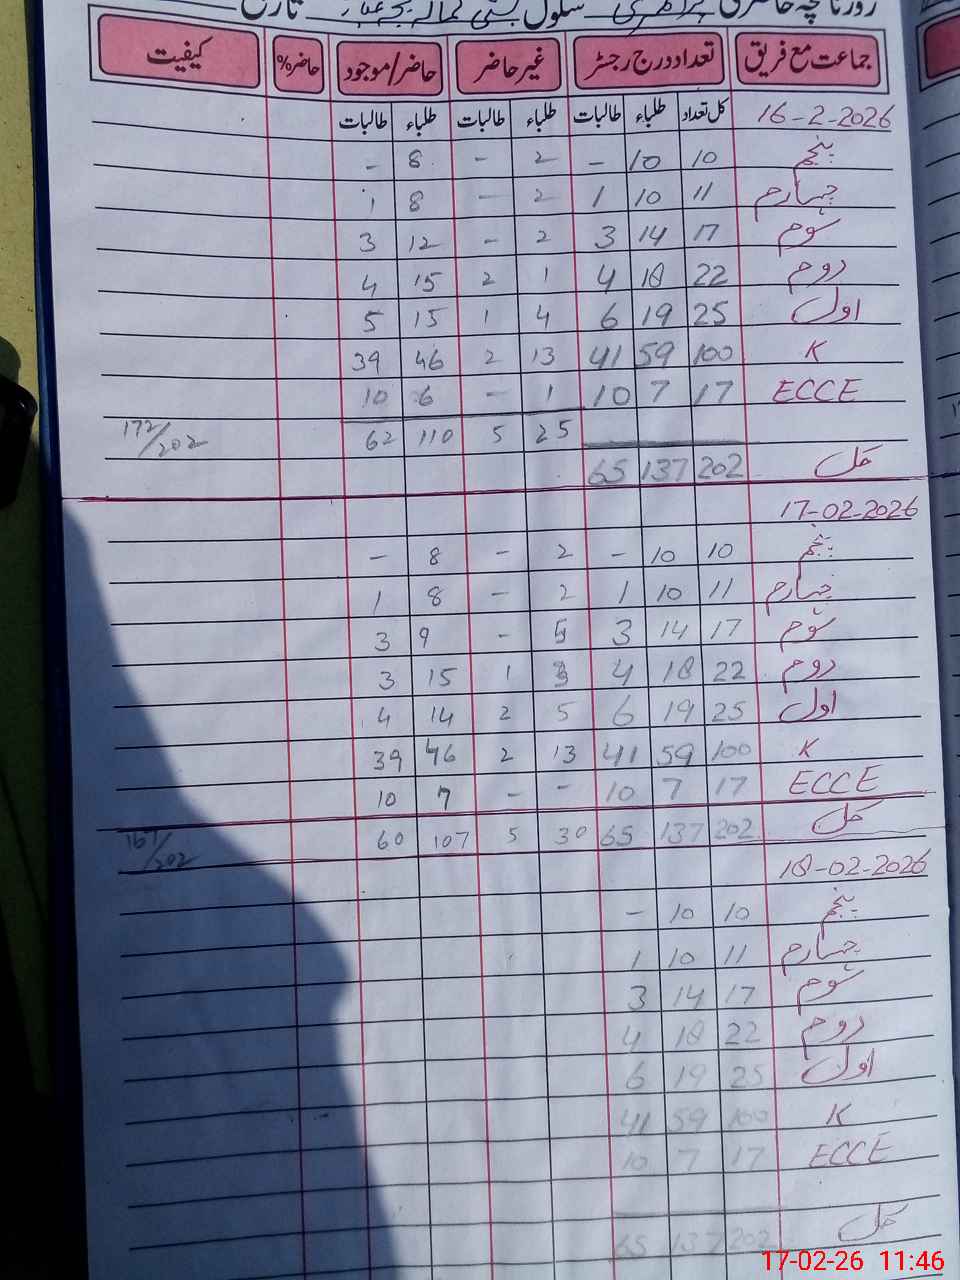 روزنامچہ حاضری سکول بستی تاریخ
جماعت مع فریق تعداد درج رجسٹر غیر حاضر حاضر/موجود حاضر% کیفیت
16-2-2026 کل تعداد طلباء طالبات طلباء طالبات طلباء طالبات
پنجم 10 10 - 2 - 8 -
چہارم 11 10 1 2 - 8 1
سوم 17 14 3 2 - 12 3
دوم 22 18 4 1 2 15 4
اول 25 19 6 4 1 15 5
K 100 59 41 13 2 46 39
ECCE 17 7 10 1 - 6 10
25 5 110 62 172/202
کل 202 137 65
17-02-2026
پنجم 10 10 - 2 - 8 -
چہارم 11 10 1 2 - 8 1
سوم 17 14 3 5 - 9 3
دوم 22 18 4 3 1 15 3
اول 25 19 6 5 2 14 4
K 100 59 41 13 2 46 39
ECCE 17 7 10 - - 7 10
کل 202 137 65 30 5 107 60 167/202
18-02-2026
پنجم 10 10 -
چہارم 11 10 1
سوم 17 14 3
دوم 22 18 4
اول 25 19 6
K 100 59 41
ECCE 17 7 10
کل 202 137 65
17-02-26 11:46